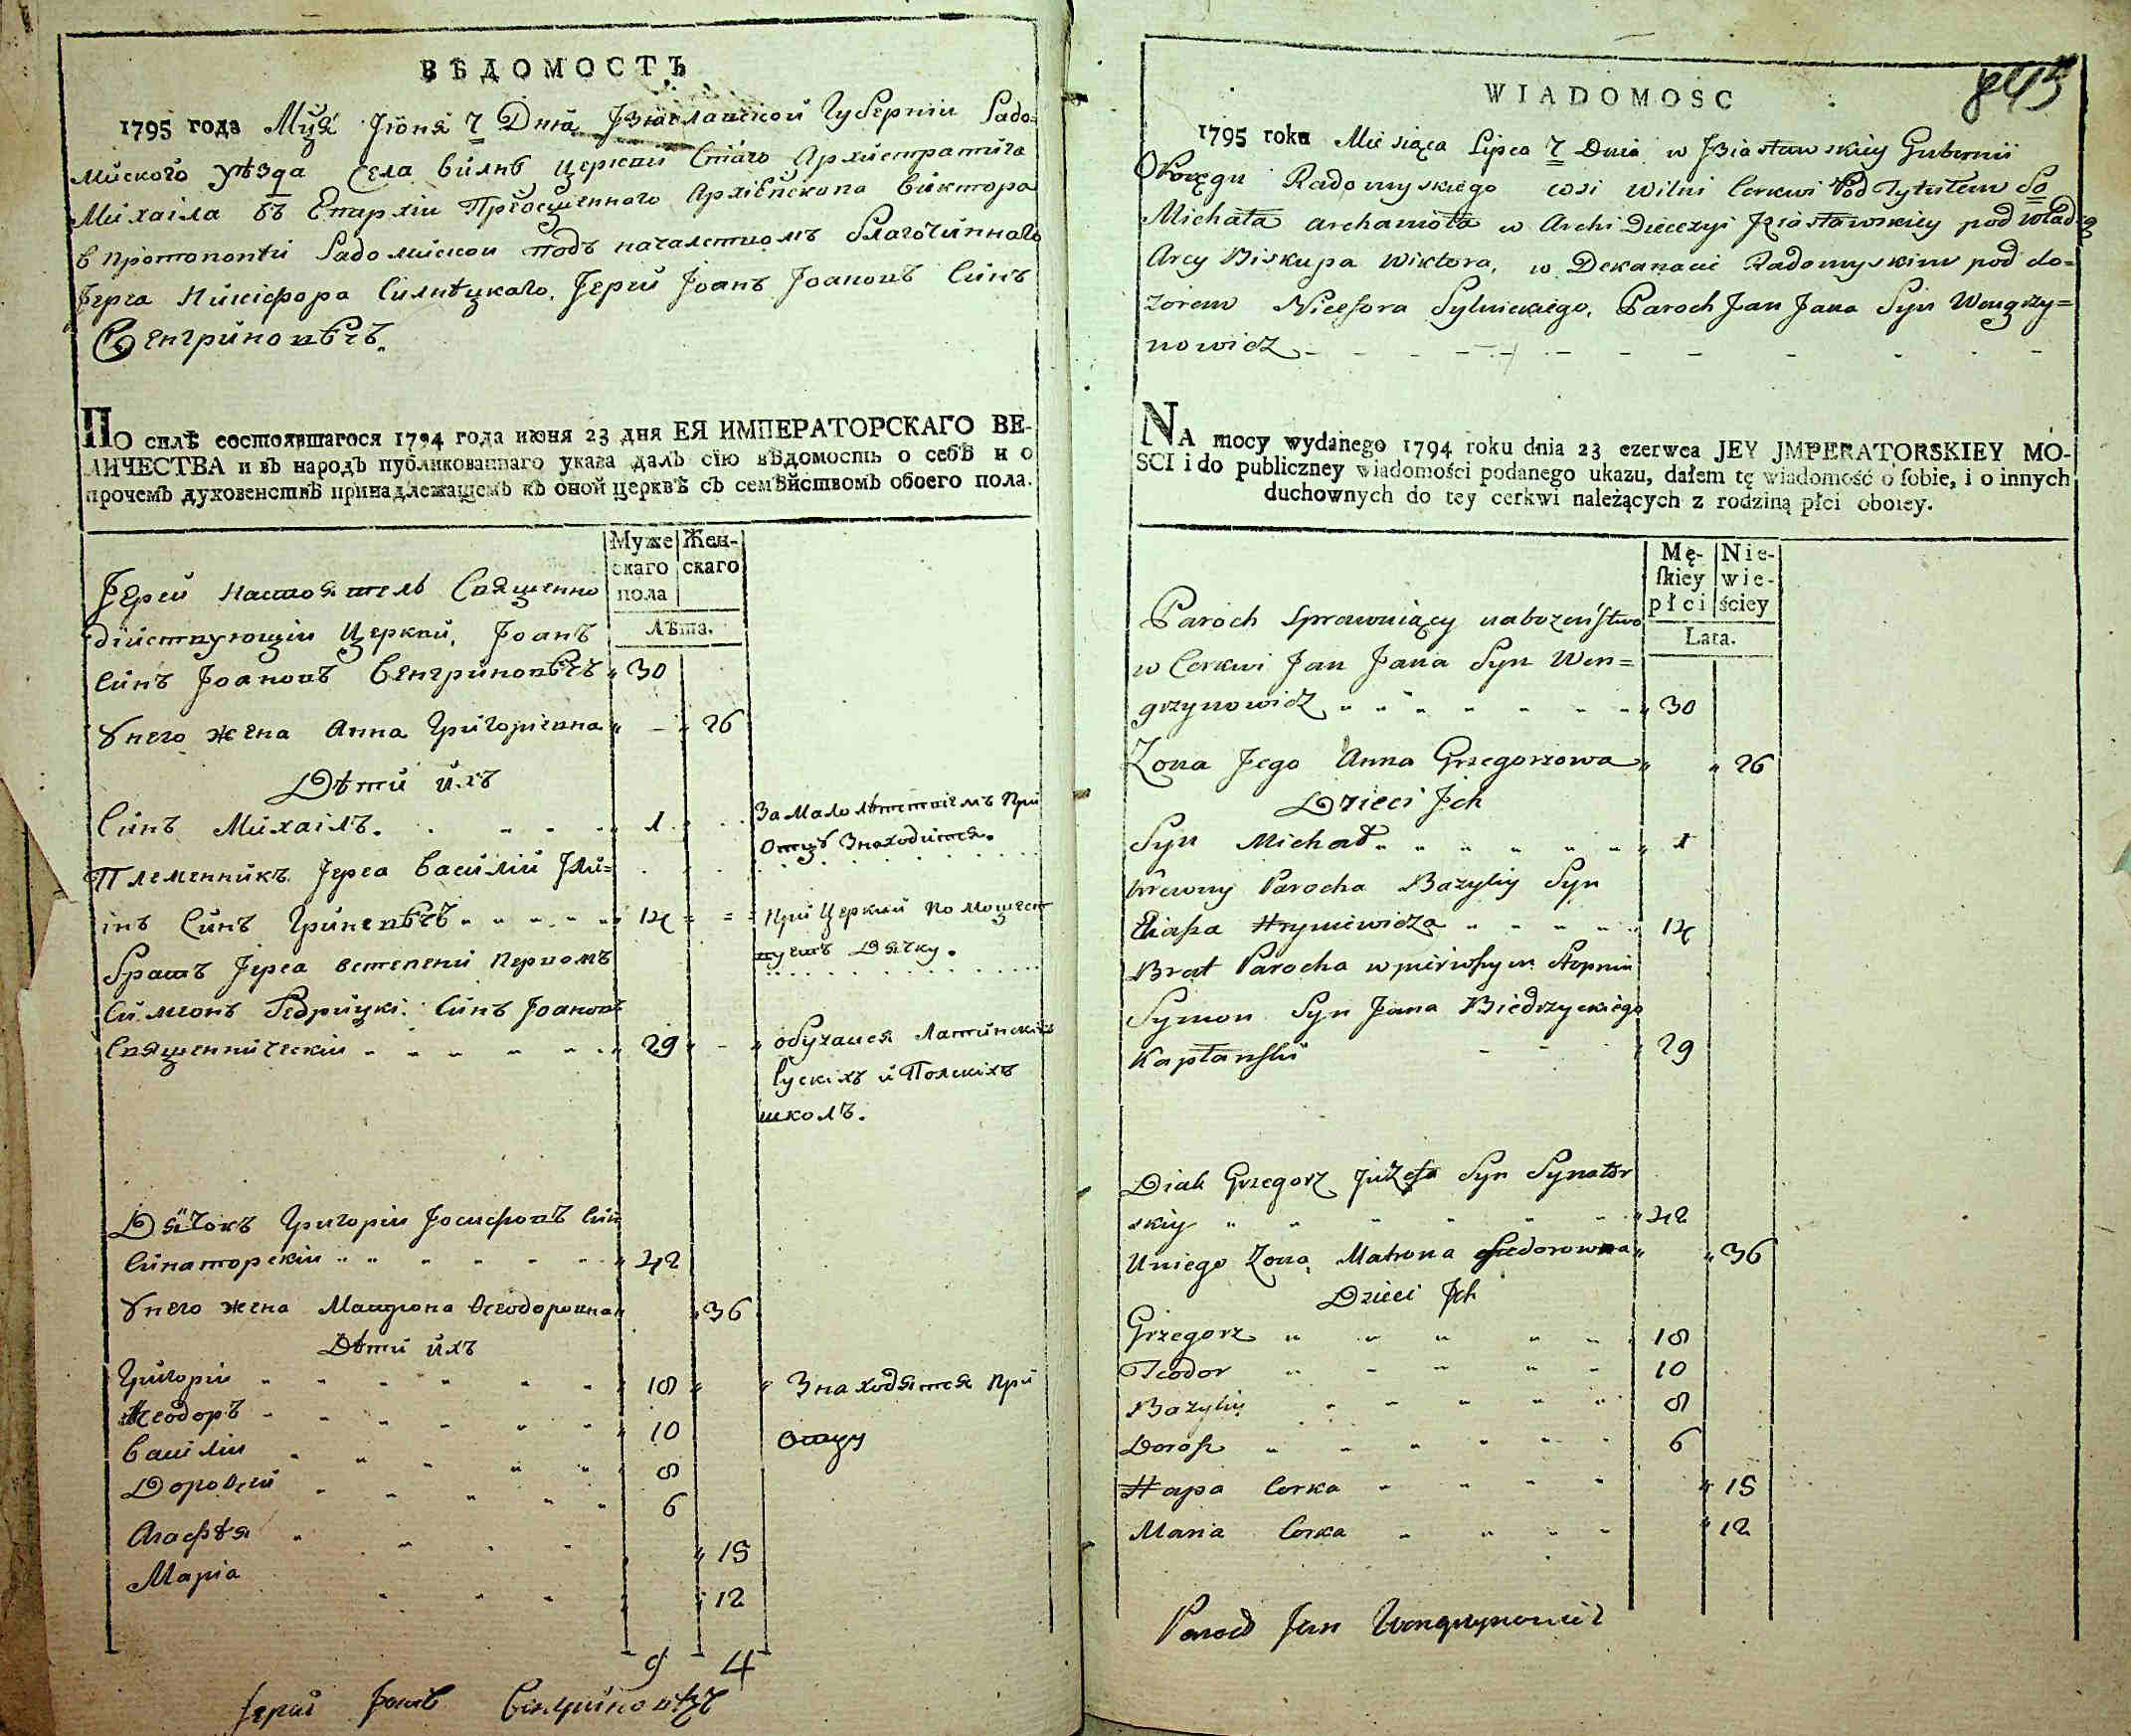 ВѢДОМОСТЪ
1795 года Мця Іюня 7 Дня Ізяславской Губерніи Радо=
миского уѣзда Села Вилнѣ церкви Стаго Архистратига
Михаіла въ Епархіи Преосщенного Архіепскопа Виктора
в Протопопіи Радомиской подъ началствомъ Благочинного
Іерея Никифора Силнѣцкаго. Іерей Іоанъ Іоановъ Синъ
Венгриновѣчъ.
ПО силѣ состоявшагося 1794 года июня 23 дня ЕЯ ИМПЕРАТОРСКАГО ВЕ-
ЛИЧЕСТВА и въ народъ публикованнаго указа далъ сїю вѣдомость о себѣ и о
прочемъ духовенствѣ принадлежащемъ къ оной церквѣ съ семѣйствомъ обоего пола.
Муже Жен-
скаго скаго
пола
Лѣта.
Іерей Настоятель Священно
дійствующіи Церкви, Іоанъ
Синъ Іоановъ Венгриновѣчъ 30
У него жена Анна Григоріевна 26
Дѣти ихъ
Синъ Михаілъ. 1 За Малолѣтствіемъ При
Отцѣ Знаходится.
Племенникъ Іерея Василій Іли=
інъ Синъ Гриневѣчъ 14 При Церкви Помощест
вуетъ Дячку.
Братъ Іерея встепени Первомъ
Симеонъ Бедрицкі Синъ Іоановъ
Священническіи 29 обучался Латинскихъ
Рускіхъ и Полскіхъ
школъ.
Дячокъ Григоріи Іосифовъ Син
Синаторскіи 42
У него жена Матрона Ѳеодоровна 36
Дѣти ихъ
Григоріи 18 Знаходятся При
Ѳеодоръ 10 Отцу
Василіи 8
Доровей 6
Агафѣя 15
Маріа 12
9 4
Іерей Іоанъ Венгриновѣчъ
WIADOMOSC
1795 roku Miesiąca Lipca 7 Dnia w Jziasławskiey Gubernii
Okręgu Radomyskiego wsi Wilni Cerkwi Pod Tytułem So
Michała archanioła w Archi Dieczyi Jziasławskiey pod władzą
Arcy Biskupa Wiktora, w Dekanacie Radomyskim pod do=
zorem Nicefora Sylnickiego, Paroch Jan Jana Syn Wengrzy=
nowicz
NA mocy wydanego 1794 roku dnia 23 czerwca JEY JMPERATORSKIEY MO-
SCI i do publiczney wiadomości podanego ukazu, dałem tę wiadomość o sobie, i o innych
duchownych do tey cerkwi należących z rodziną płci oboiey.
Mę- Nie-
skiey wie-
płci ściey
Lata.
Paroch Sprawuiący nabożeństwo
w Cerkwi Jan Jana Syn Wen=
grzynowicz 30
Zona Jego Anna Grzegorzowa 26
Dzieci Jch
Syn Michał 1
Krewny Parocha Bazyliy Syn
Eliasza Hryniewicza 14
Brat Parocha w pierwszym Stopniu
Symon Syn Jana Biedrzyckiego
Kapłanski 29
Diak Grzegorz Juzefa Syn Synator
skiy 42
U niego Zona Matrona Fiedorowna 36
Dzieci Jch
Grzegorz 18
Teodor 10
Bazyliy 8
Dorosz 6
Hapa Corka 15
Maria Corka 12
Paroch Jan Wengrzynowicz